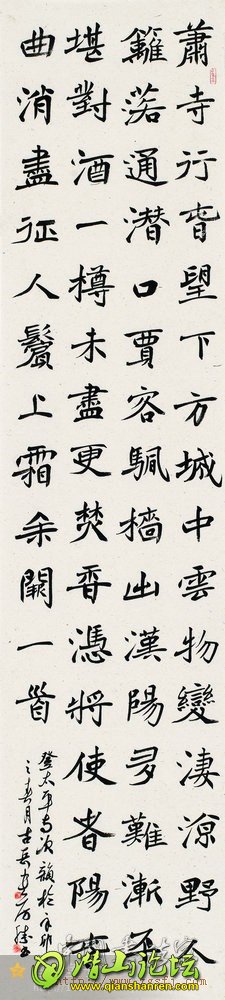 蕭寺行旾望下方城中雲物變淒涼野人
籬落通潛口賈客颿檣出漢陽多難漸平
堪對酒一樽未盡更焚香憑將使者陽旾
曲消盡征人鬢上霜余闕一首
登太平寺次韻於辛卯
之春月古吳
潜山论坛
www.qianshanren.com